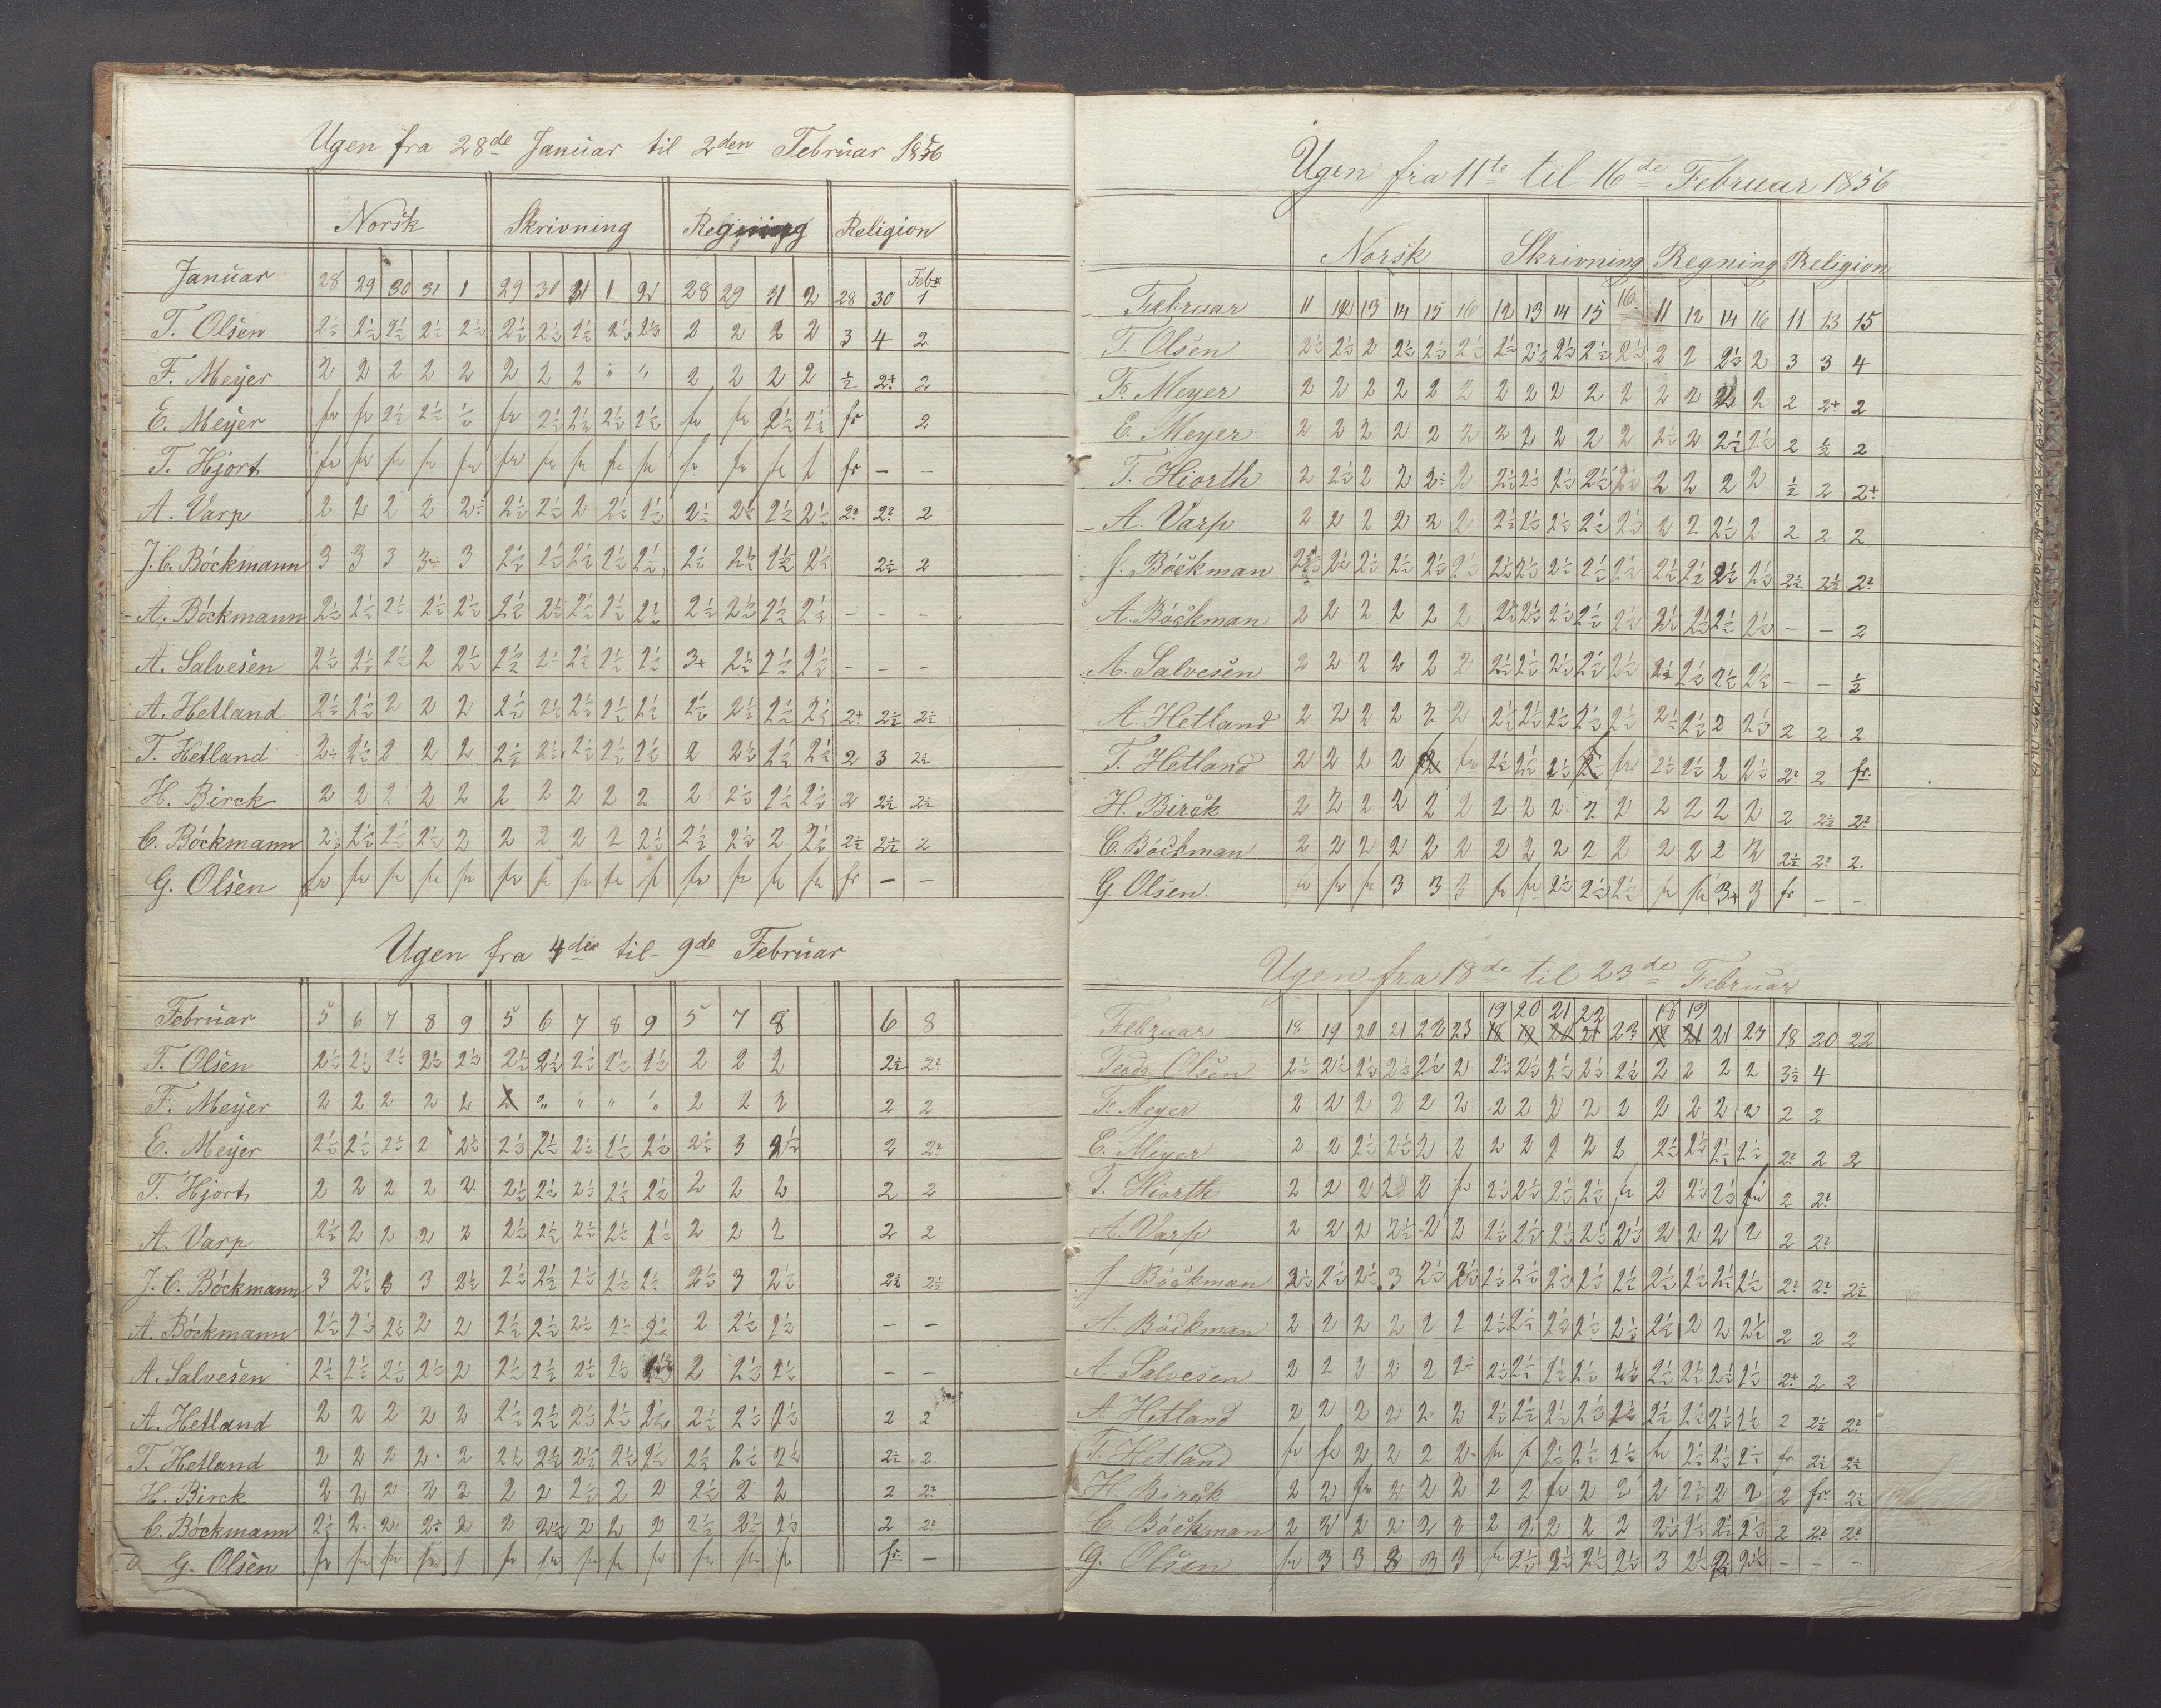 Ugen fra 28de Januar til 2den Februar 1856
Norsk Skrivning Regning Religion
Januar 28 29 30 31 1 29 30 31 1 2 28 29 31 2 28 30 Febr 1
T. Olsen 2½ 2½ 2½ 2½ 2½ 2½ 2½ 2½ 2½ 2½ 2 2 2 2 3 4 2
F. Meyer 2 2 2 2 2 2 2 2 " " 2 2 2 2 ½ 2+ 2
E. Meyer fr fr 2½ 2½ ½ fr 2½ 2½ 2½ 2½ fr fr 2½ 2½ fr 2
T. Hjort fr fr fr fr fr fr fr fr fr fr fr fr fr f fr — —
A. Varp 2 2 2 2 2÷ 2½ 2½ 2 2½ 2½ 2½ 2½ 2½ 2½ 2? 2? 2
J. C. Böckmann 3 3 3 3÷ 3 2½ 2½ 2½ 2½ 2½ 2½ 2½ 2½ 2½ 2½ 2
A. Böckmann 2½ 2½ 2½ 2½ 2½ 2½ 2½ 2½ 2½ 2½ 2½ 2½ 2½ 2½ — — —
A. Salvesen 2½ 2½ 2½ 2 2½ 2½ 2½ 2½ 2½ 2½ 3+ 2½ 2½ 2½ — — —
A. Hetland 2½ 2½ 2 2 2 2½ 2½ 2½ 2½ 2½ 2½ 2½ 2½ 2½ 2+ 2½ 2½
T. Hetland 2÷ 2½ 2 2 2 2½ 2½ 2½ 2½ 2½ 2 2½ 2½ 2½ 2 3 2½
H. Birck 2 2 2 2 2 2 2 2 2 2 2 2½ 2½ 2½ 2 2½ 2½
C. Böckmann 2½ 2½ 2½ 2½ 2 2 2 2 2 2½ 2½ 2½ 2 2½ 2½ 2½ 2
G. Olsen fr fr fr fr fr fr fr fr fr fr fr fr fr fr fr — —
Ugen fra 4de til 9de Februar
Februar 5 6 7 8 9 5 6 7 8 9 5 7 8 6 8
T. Olsen 2½ 2½ 2½ 2½ 2½ 2½ 2½ 2½ 2½ 2½ 2 2 2 2½ 2?
F. Meyer 2 2 2 2 2 " " " " 2 2 2 2 2
E. Meyer 2½ 2½ 2½ 2 2½ 2½ 2½ 2½ 2½ 2½ 2½ 3 2½ 2 2?
T. Hjort 2 2 2 2 2 2½ 2½ 2½ 2½ 2½ 2 2 2 2 2
A. Varp 2½ 2 2 2 2 2½ 2½ 2½ 2½ 2½ 2 2 2 2 2
J. C. Böckmann 3 2½ 3 3 2½ 2½ 2½ 2½ 2½ 2½ 2½ 3 2½ 2½ 2½
A. Böckmann 2½ 2½ 2½ 2 2 2½ 2½ 2½ 2½ 2½ 2 2½ 2½ — —
A. Salvesen 2½ 2½ 2½ 2½ 2 2½ 2½ 2½ 2½ 2 2½ 2½ — —
A. Hetland 2 2 2 2 2 2½ 2½ 2½ 2½ 2½ 2½ 2½ 2½ 2 2
T. Hetland 2 2 2 2 2 2½ 2½ 2½ 2½ 2½ 2½ 2½ 2½ 2½ 2
H. Birck 2 2 2 2 2 2 2 2½ 2 2 2½ 2 2 2 2?
C. Böckmann 2½ 2 2 2÷ 2 2 2½ 2 2 2 2½ 2½ 2½ 2 2?
G. Olsen fr fr fr fr f fr fr fr fr fr fr fr fr fr —
Ugen fra 11te til 16de Februar 1856
Norsk Skrivning Regning Religion
Februar 11 12 13 14 15 16 12 13 14 15 16 11 12 14 16 11 13 15
T. Olsen 2½ 2½ 2 2½ 2½ 2½ 2½ 2½ 2½ 2½ 2½ 2 2 2½ 2 3 3 4
Fr. Meyer 2 2 2 2 2 2 2 2 2 2 2 2 2 2 2 2 2+ 2
E. Meyer 2 2 2 2 2 2 2 2 2 2 2 2½ 2 2½ 2½ 2 ½ 2
T. Hiorth 2 2½ 2 2 2÷ 2 2½ 2½ 2½ 2½ 2½ 2 2 2 2 ½ 2 2+
A. Varp 2 2 2 2 2 2 2½ 2½ 2½ 2½ 2½ 2 2 2½ 2 2 2 2
J. Böckman 2½ 2½ 2½ 2½ 2½ 2½ 2½ 2½ 2½ 2½ 2½ 2½ 2½ 2½ 2½ 2½ 2½ 2?
A. Böckman 2 2 2 2 2 2 2½ 2½ 2½ 2½ 2½ 2½ 2½ 2½ 2½ — — 2
A. Salvesen 2 2 2 2 2 2 2½ 2½ 2½ 2½ 2½ 2½ 2½ 2½ 2½ — — ½
A. Hetland 2 2 2 2 2 2 2½ 2½ 2½ 2½ 2½ 2½ 2½ 2 2½ 2 2 2
T. Hetland 2 2 2 2 fr fr 2½ 2½ 2½ fr 2½ 2½ 2 2½ 2? 2 fr
H. Birck 2 2 2 2 2 2 2 2 2 2 2 2 2 2 2 2 2½ 2?
C. Böckman 2 2 2 2 2 2 2 2 2 2 2 2 2 2 2 2½ 2? 2
G. Olsen fr fr fr 3 3 3 fr fr 2½ 2½ 2½ fr fr 3+ 3 fr — —
Ugen fra 18de til 23de Februar
19 20 21 22 18 19
Februar 18 19 20 21 22 23 18 19 20 21 23 19 21 21 23 18 20 22
Olsen 2½ 2½ 2½ 2½ 2½ 2 2½ 2½ 2½ 2½ 2½ 2 2 2 2 3½ 4
F. Meyer 2 2 2 2 2 2 2 2 2 2 2 2 2 2 2 2 2
E. Meyer 2 2 2½ 2½ 2 2 2 2 2 2 2 2½ 2½ 2½ 2½ 2? 2 2
T. Hiorth 2 2 2 2 2 fr 2½ 2½ 2½ 2½ fr 2 2½ 2½ fr 2 2?
A. Varp 2 2 2 2½ 2 2 2½ 2½ 2½ 2½ 2½ 2 2 2 2 2 2?
J. Böckman 2½ 2½ 2½ 3 2½ 2½ 2½ 2½ 2½ 2½ 2½ 2½ 2½ 2½ 2½ 2? 2? 2½
A. Böckman 2 2 2 2 2 2 2½ 2½ 2½ 2½ 2½ 2½ 2 2 2½ 2 2 2
A. Salvesen 2 2 2 2 2 2÷ 2½ 2½ 2½ 2½ 2½ 2½ 2½ 2½ 2½ 2+ 2 2
A. Hetland 2 2 2 2 2 2 2½ 2½ 2½ 2½ 2½ 2½ 2½ 2½ 2½ 2 2½ 2?
T. Hetland fr fr 2 2 2 2 fr f 2½ 2½ 2½ fr 2½ 2½ 2½ fr 2½ 2½
H. Birck 2 2 fr 2 2 2 2 2 fr 2 2 2 2½ 2 2 2 fr 2½
C. Böckman 2 2 2 2 2 2 2 2 2 2 2 2½ 2½ 2½ 2½ 2 2? 2?
G. Olsen fr 3 3 3 3 3 fr 2½ 2½ 2½ 2½ 3 2½ 2½ 2½ — — —